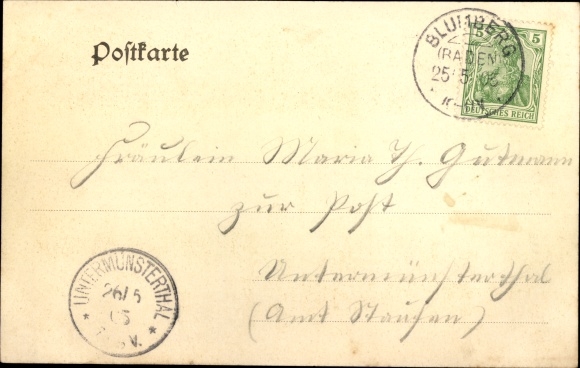 Postkarte
BLUMBERG
(BADEN)
25 5 05
5 5
DEUTSCHES REICH
Fräulein Maria Th. Gutmann
zur Post
Untermünsterthal
(Amt Staufen)
* UNTERMÜNSTERTHAL *
26/5
05
V.